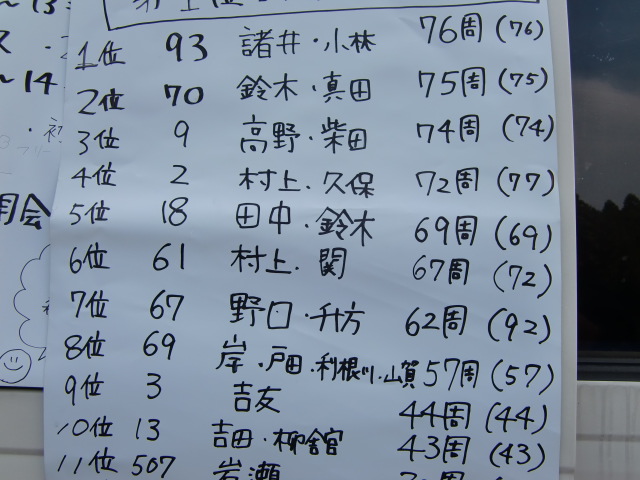 1位 93 諸井・小林 76周 (76)
2位 70 鈴木・真田 75周 (75)
3位 9 高野・柴田 74周 (74)
4位 2 村上・久保 72周 (77)
5位 18 田中・鈴木 69周 (69)
6位 61 村上・関 67周 (72)
7位 67 野口・千方 62周 (92)
8位 69 岸・戸田・利根川・山賀 57周 (57)
9位 3 吉友 44周 (44)
10位 13 吉田・柳舘 43周 (43)
11位 507 岩瀬
~13
ス
~14
・初
明会